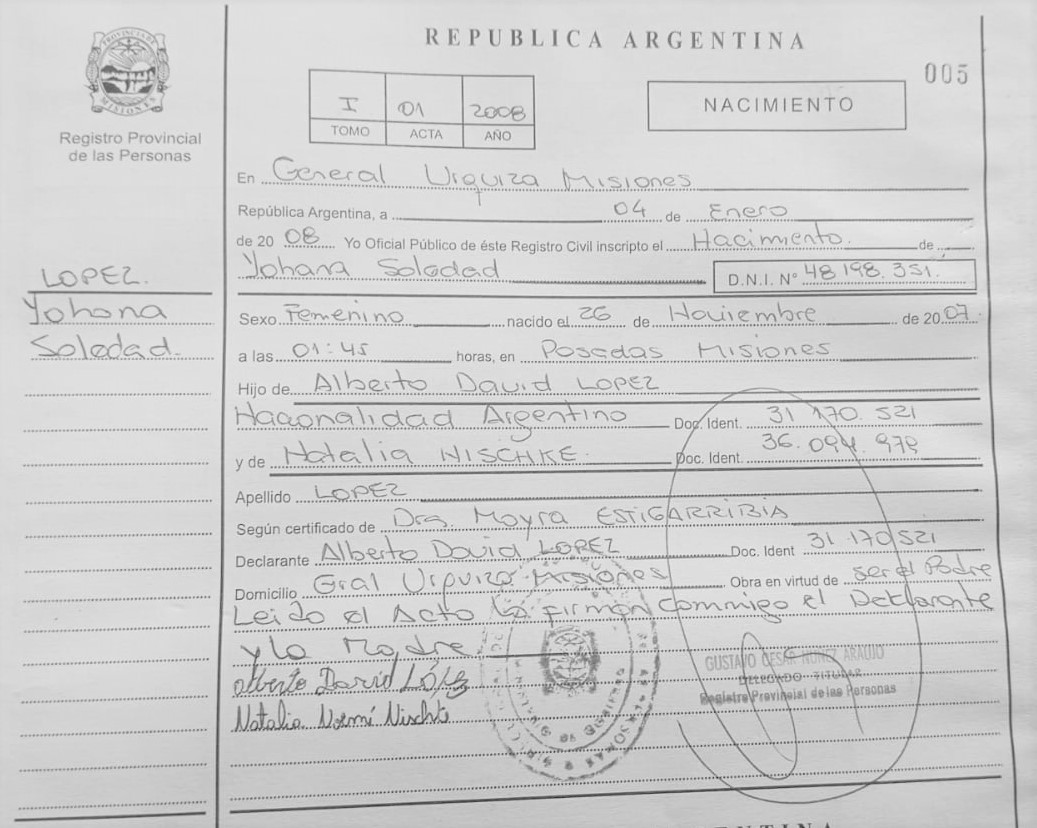 REPUBLICA ARGENTINA
005
PROVINCIA DE
MISIONES
Registro Provincial
de las Personas
I 01 2008
TOMO ACTA AÑO
NACIMIENTO
LOPEZ.
Yohana
Soledad.
En General Urquiza Misiones
República Argentina, a 04 de Enero
de 20 08 Yo Oficial Público de éste Registro Civil inscripto el Nacimiento. de
Yohana Soledad D.N.I. Nº 48 198. 351.
Sexo Femenino nacido el 26 de Noviembre de 20 07.
a las 01:45 horas, en Posadas Misiones
Hijo de Alberto David LOPEZ
Nacionalidad Argentino Doc. Ident. 31 170. 521
y de Natalia NISCHKE. Doc. Ident. 36. 094. 979
Apellido LOPEZ
Según certificado de Dra. Moyra ESTIGARRIBIA
Declarante Alberto David LOPEZ Doc. Ident 31 170 521
Domicilio Gral Urquiza Misiones Obra en virtud de ser el Padre
Leido el Acto la firman commigo el Declarante
y la Madre
Alberto David López
Natalia Noemí Nischke
GUSTAVO CESAR NUÑEZ ARAUJO
DELEGADO TITULAR
Registro Provincial de las Personas